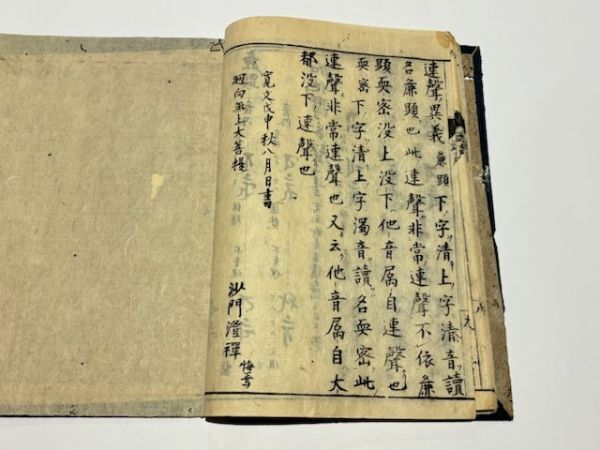 連聲異義 廉顕 下字清上字清音讀
名廉顕也此連聲非常連聲不依廉
顕耎密没上没下他音属自連聲也
耎密下字清上字濁音讀名耎密此
連聲非常連聲也又云他音属自大
都没下連聲也
寛文戊申秋八月日書
廻向無上大菩提
沙門澄禪